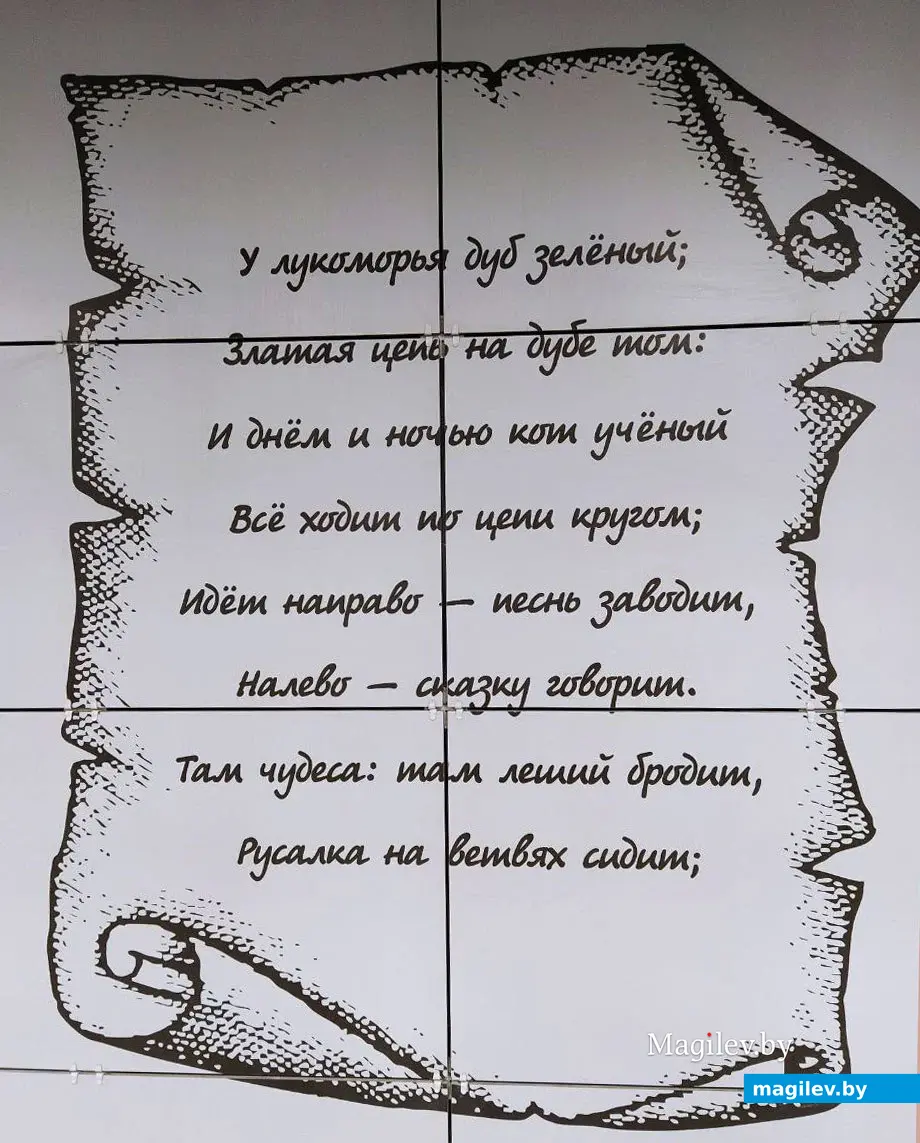 У лукоморья дуб зелёный;
Златая цепь на дубе том:
И днём и ночью кот учёный
Всё ходит по цепи кругом;
Идёт направо — песнь заводит,
Налево — сказку говорит.
Там чудеса: там леший бродит,
Русалка на ветвях сидит;
Magilev.by
magilev.by